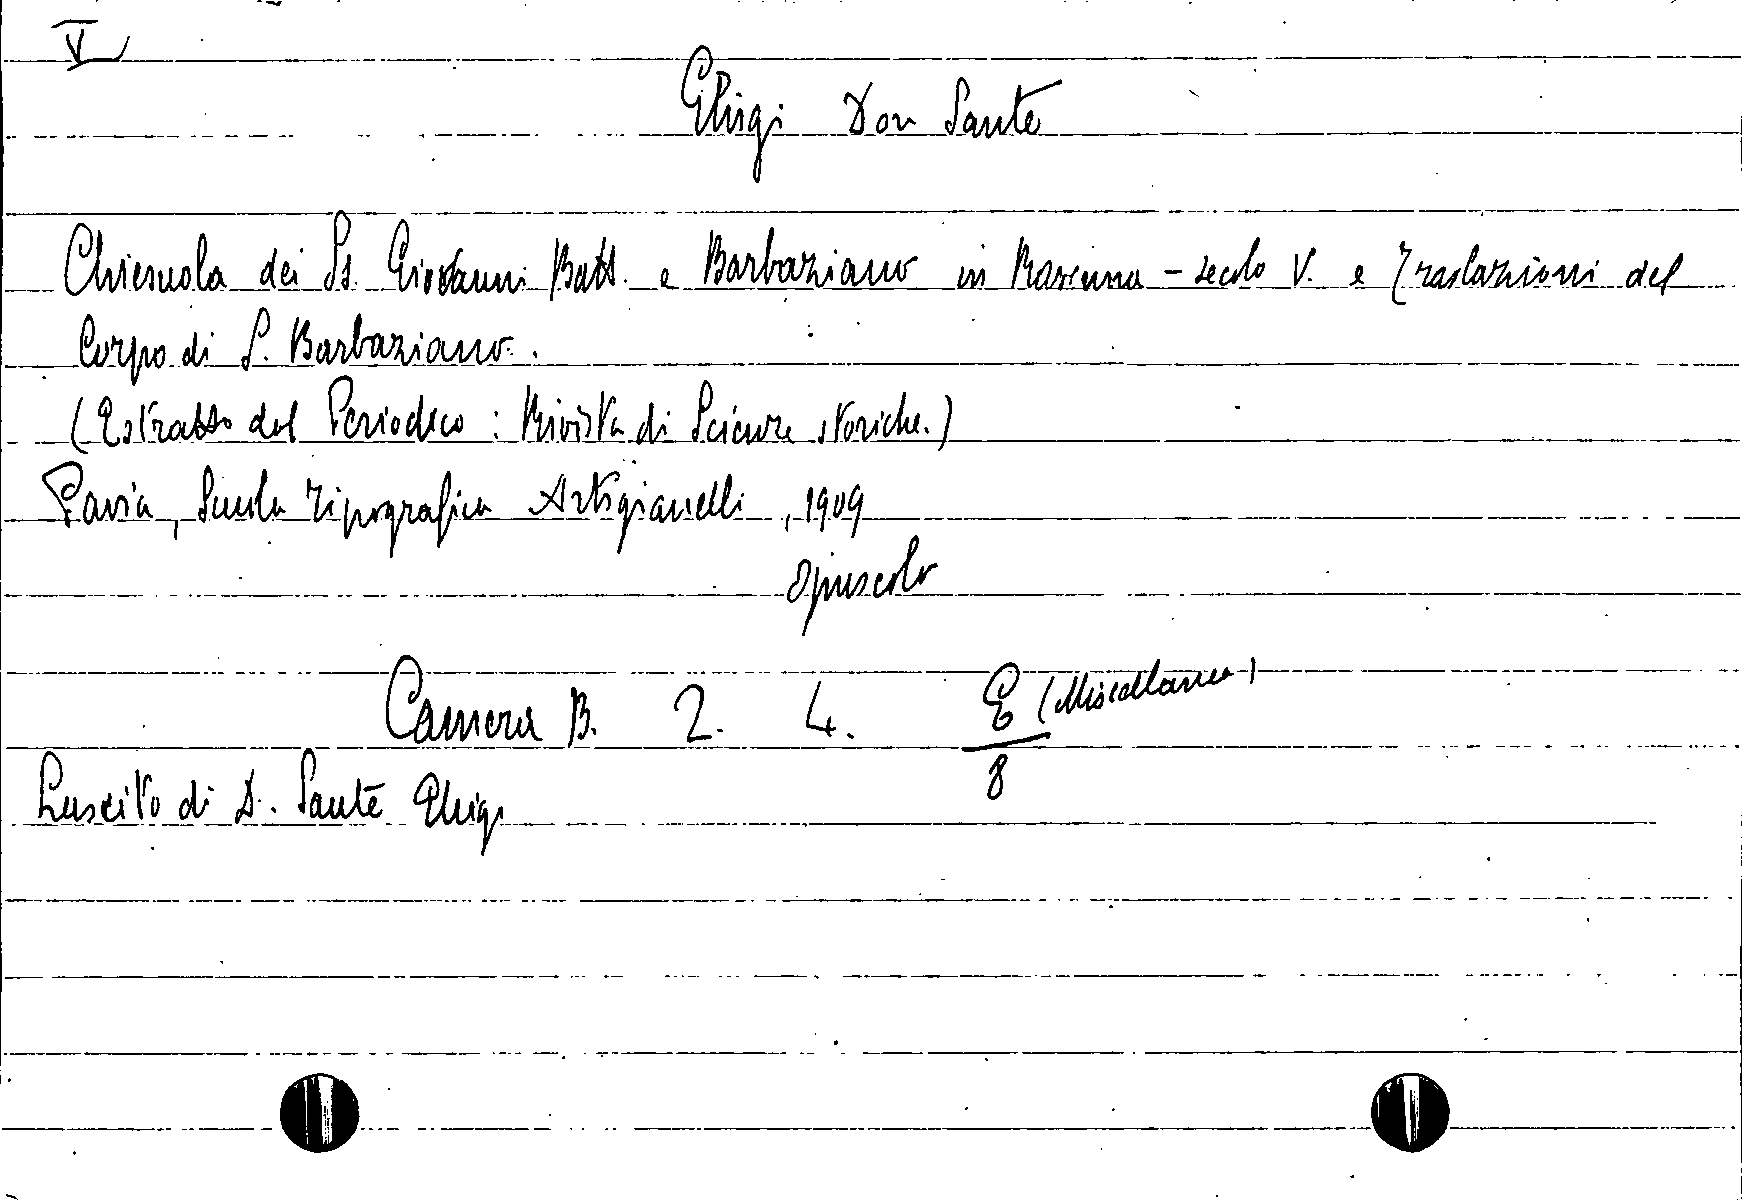 V
Ghigi Don Sante
Chiesuola dei Ss. Giovanni Batt. e Barbaziano in Ravenna - secolo V. e Traslazioni del
Corpo di S. Barbaziano.
(Estratto del Periodico: Rivista di Scienze storiche.)
Pavia, Scuola Tipografica Artigianelli, 1909
opuscolo
Camera B. 2. 4. E (Miscellanea)
8
Lascito di D. Sante Ghigi